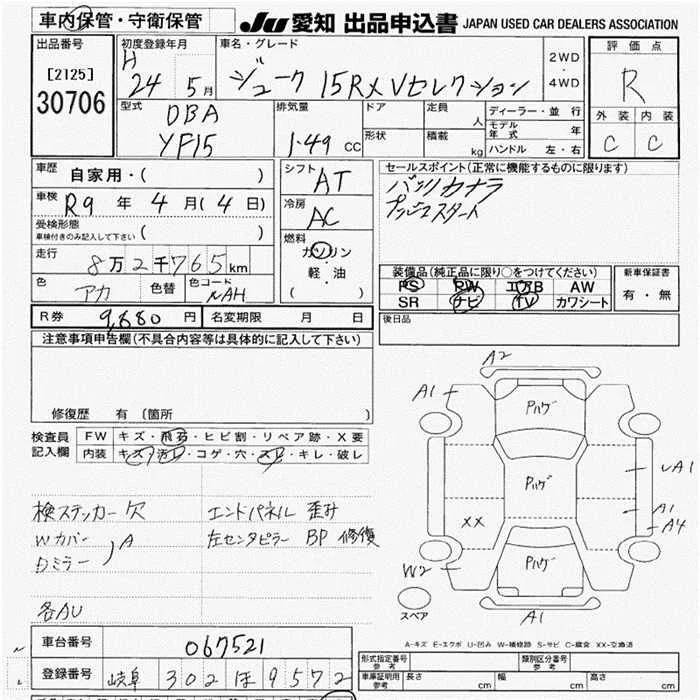 車内保管・守衛保管
JU 愛知 出品申込書 JAPAN USED CAR DEALERS ASSOCIATION
出品番号
[2125]
30706
初度登録年月
H 24 5月
車名・グレード
ジューク 15RX Vセレクション
2WD
・
4WD
評価点
R
外装 内装
C C
型式
DBA
YF15
排気量
1.49 cc
ドア
定員
人
形状
積載
kg
ディーラー・並行
モデル年式 年
ハンドル 左・右
車歴 自家用・( )
車検 R9 年 4 月 ( 4 日)
受検形態
車検付きのみ記入して下さい ( )
走行 8万2千765km
色 アカ 色替 色コード NAH
シフト AT
冷房 AC
燃料
ガソリン
・
軽・油
( )
セールスポイント(正常に機能するものに限ります)
バックカメラ
プッシュスタート
装備品(純正品に限り○をつけてください)
PS PW エアB AW
SR ナビ TV カワシート
新車保証書
有・無
R券 9,880円 名変期限 月 日
後日品
注意事項申告欄(不具合内容等は具体的に記入して下さい)
修復歴 有 〔箇所 〕
検査員記入欄
FW キズ・飛石・ヒビ割・リペア跡・X要
内装 キズ・汚レ・コゲ・穴・スレ・キレ・破レ
検ステッカー欠
Wカバー
Dミラー
A
各AU
エンドパネル 歪み
左センタピラー BP 修復
A2
A1
Pハゲ
Pハゲ
UA1
A1
A4
XX
Pハゲ
W2
A1
スペア
A-キズ E-エクボ U-凹み W-補修跡 S-サビ C-腐食 XX-交換済
車台番号 067521
登録番号 岐阜 302 ほ 9572
形式指定番号
参考
類別区分番号
参考
車庫証明用
参考
長さ cm 幅 cm 高さ cm